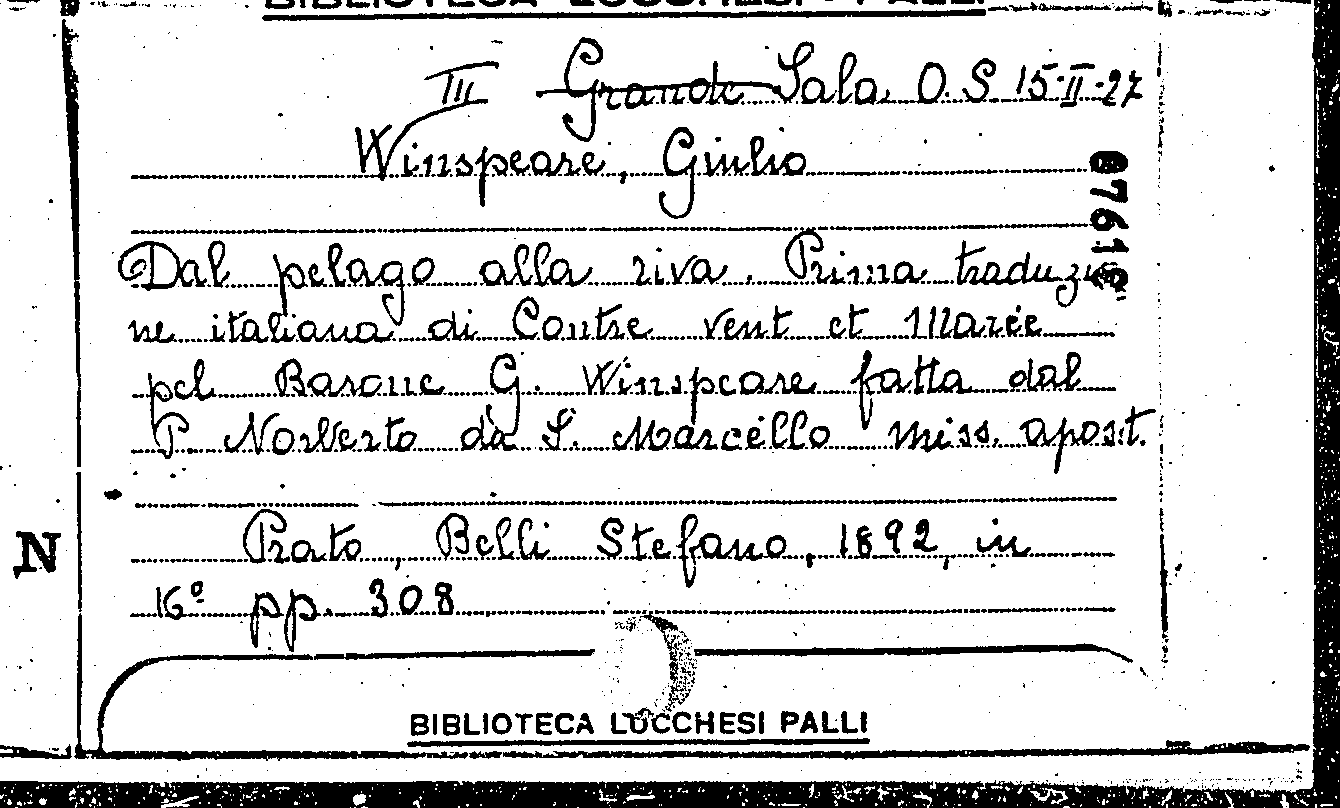 BIBLIOTECA LUCCHESI - PALLI
III Grande Sala O. S. 15-II-27
Winspeare, Giulio
Dal pelago alla riva. Prima traduzio
ne italiana di Contre vent et Marée
pel Barone G. Winspeare fatta dal
P. Norberto da S. Marcello miss. apost.
Prato, Belli Stefano, 1892, in
16º pp. 308
N
BIBLIOTECA LUCCHESI PALLI